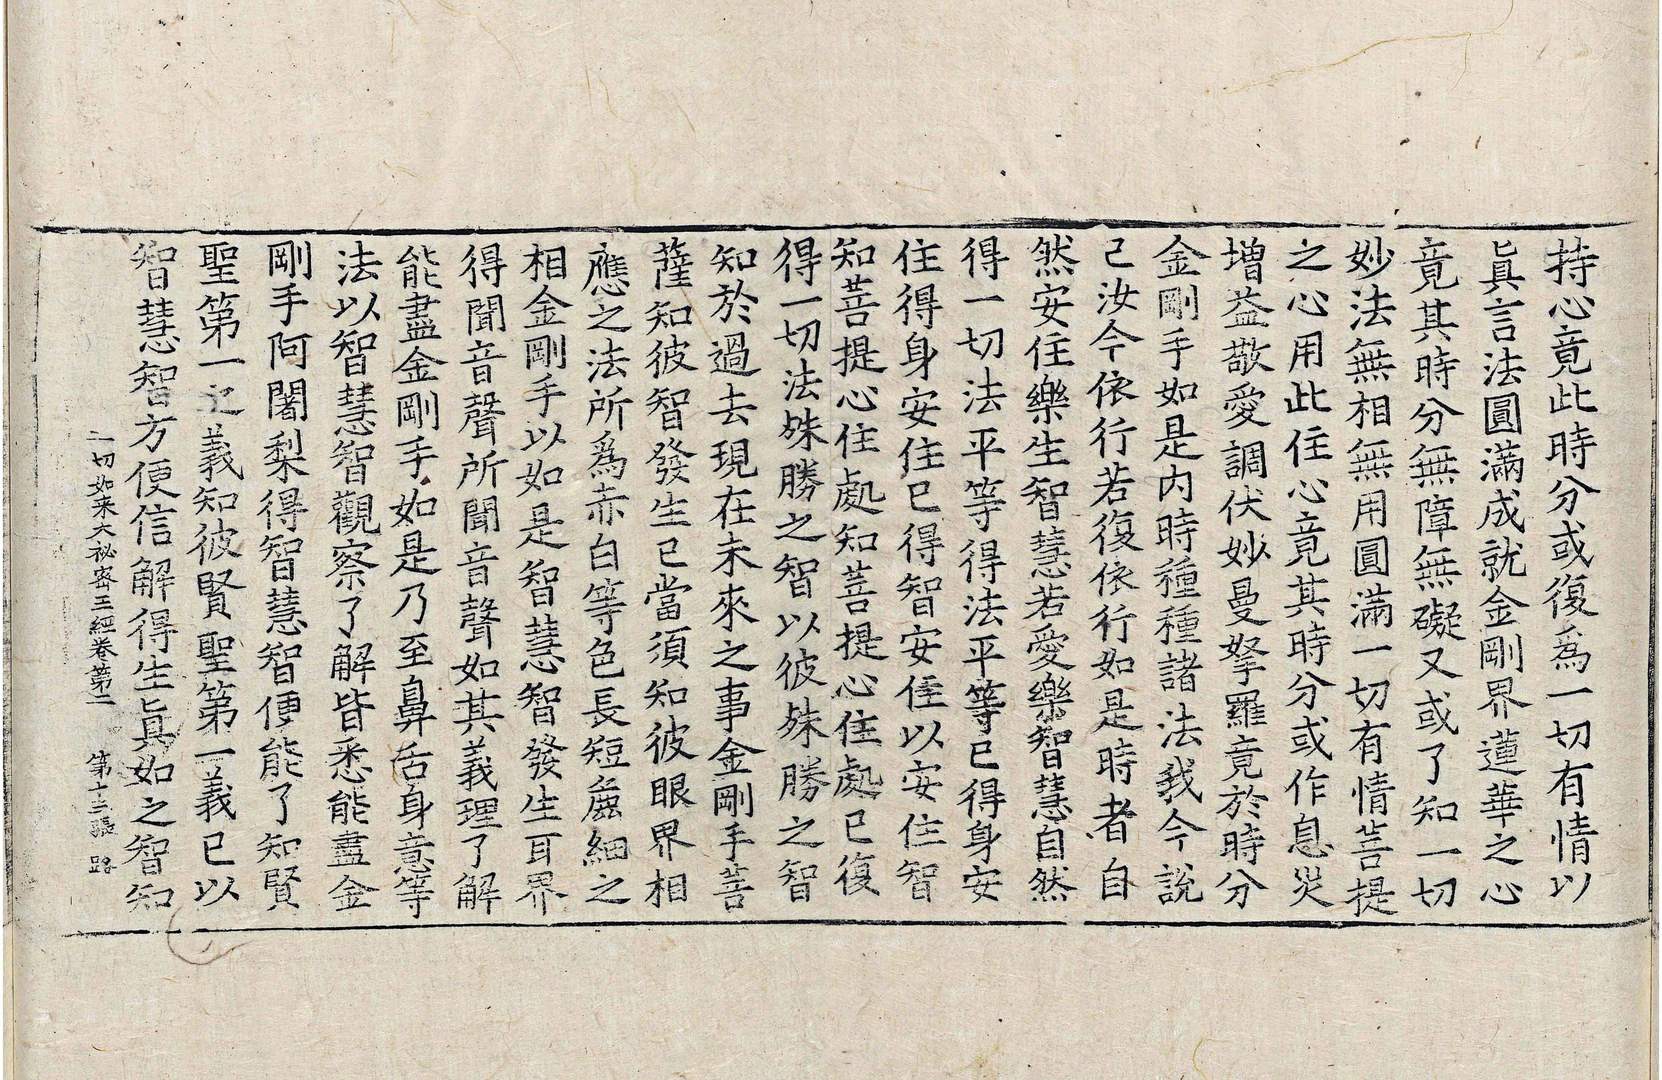 持心竟此時分或復爲一切有情以
眞言法圓滿成就金剛界蓮華之心
竟其時分無障無礙又或了知一切
妙法無相無用圓滿一切有情菩提
之心用此住心竟其時分或作息災
增益敬愛調伏妙曼拏羅竟於時分
金剛手如是内時種種諸法我今說
已汝今依行若復依行如是時者自
然安住樂生智慧若愛樂智慧自然
得一切法平等得法平等已得身安
住得身安住已得智安住以安住智
知菩提心住處知菩提心住處已復
得一切法殊勝之智以彼殊勝之智
知於過去現在未來之事金剛手菩
薩知彼智發生已當須知彼眼界相
應之法所爲赤白等色長短麁細之
相金剛手以如是智慧智發生耳界
得聞音聲所聞音聲如其義理了解
能盡金剛手如是乃至鼻舌身意等
法以智慧智觀察了解皆悉能盡金
剛手阿闍梨得智慧智便能了知賢
聖第一之義知彼賢聖第一義已以
智慧智方便信解得生眞如之智知
一切如来大祕密王經卷第二 第十三張 路